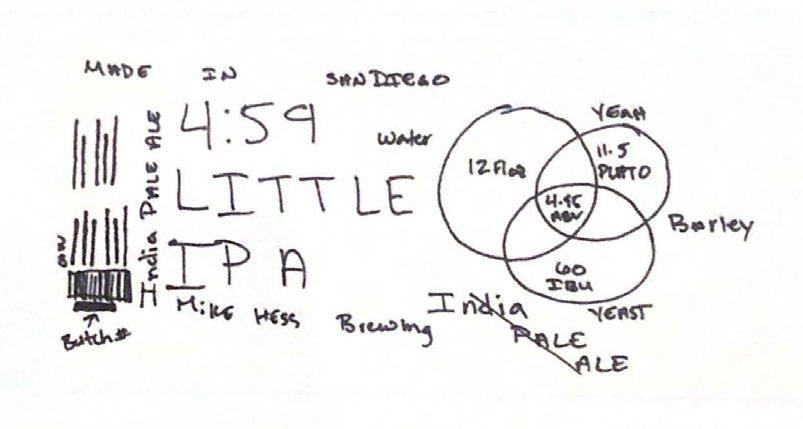 MADE IN SAN DIEGO
India PALE ALE
4:59
LITTLE
IPA
MIKE HESS Brewing
Batch#
Water
YEAH
12 Floz
11.5
PLATO
ABV
Barley
60
IBU
YEAST
India
PALE
ALE